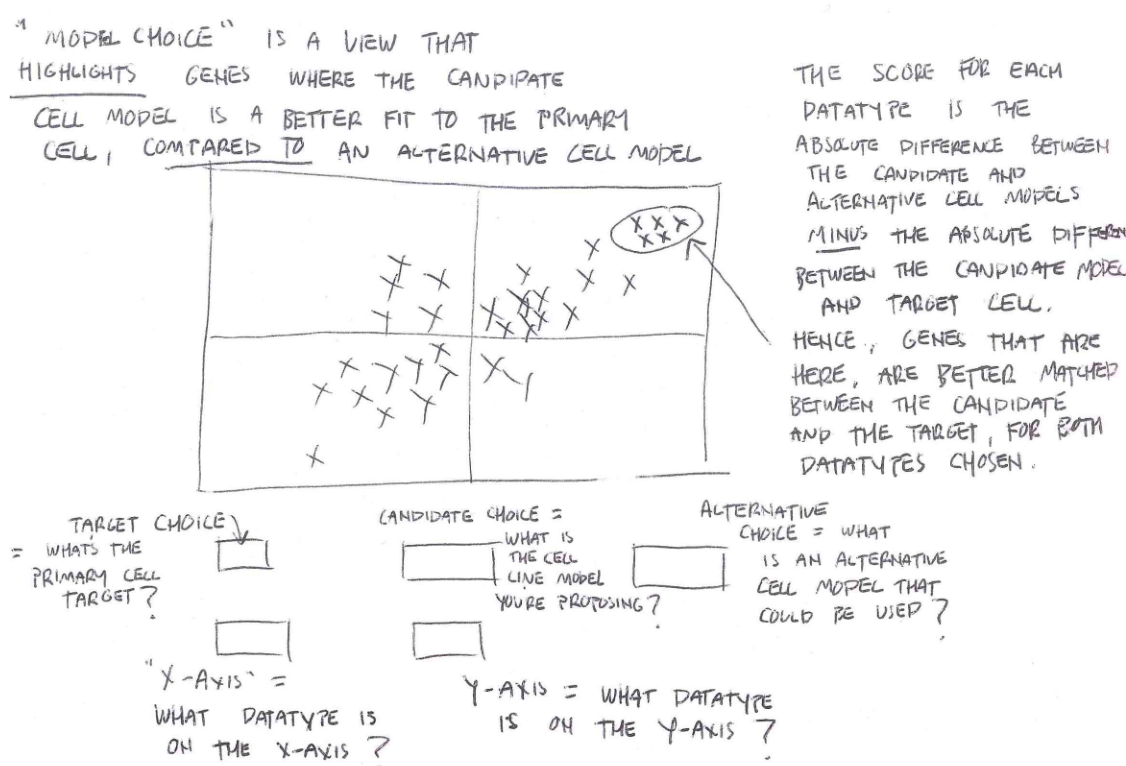 "MODEL CHOICE" IS A VIEW THAT
HIGHLIGHTS GENES WHERE THE CANDIDATE
CELL MODEL IS A BETTER FIT TO THE PRIMARY
CELL, COMPARED TO AN ALTERNATIVE CELL MODEL
THE SCORE FOR EACH
DATATYPE IS THE
ABSOLUTE DIFFERENCE BETWEEN
THE CANDIDATE AND
ALTERNATIVE CELL MODELS
MINUS THE ABSOLUTE DIFFEREN
BETWEEN THE CANDIDATE MODEL
AND TARGET CELL.
HENCE, GENES THAT ARE
HERE, ARE BETTER MATCHED
BETWEEN THE CANDIDATE
AND THE TARGET, FOR BOTH
DATATYPES CHOSEN.
TARGET CHOICE
= WHATS THE
PRIMARY CELL
TARGET?
CANDIDATE CHOICE =
WHAT IS
THE CELL
LINE MODEL
YOU'RE PROPOSING?
ALTERNATIVE
CHOICE = WHAT
IS AN ALTERNATIVE
CELL MODEL THAT
COULD BE USED?
"X-AXIS" =
WHAT DATATYPE IS
ON THE X-AXIS?
Y-AXIS = WHAT DATATYPE
IS ON THE Y-AXIS?